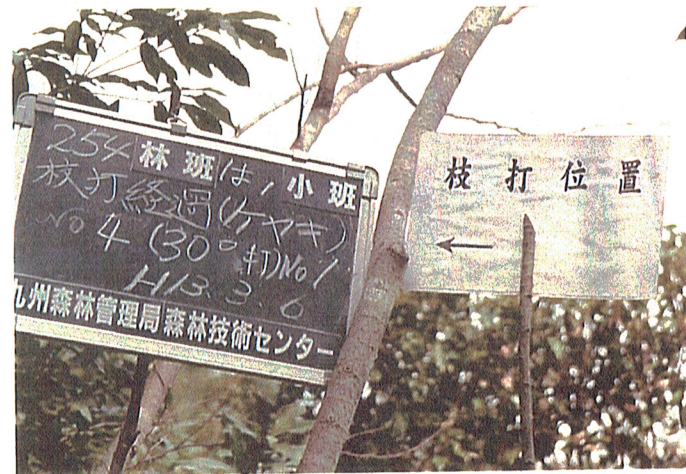 254 林班 は1 小班
枝打経過(ケヤキ)
No 4 (30°打)No1
H13.3.6
九州森林管理局森林技術センター
枝打位置
←